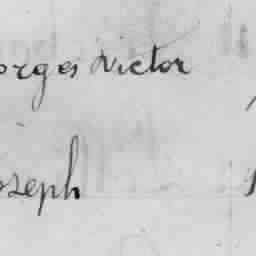 orges Victor
oseph